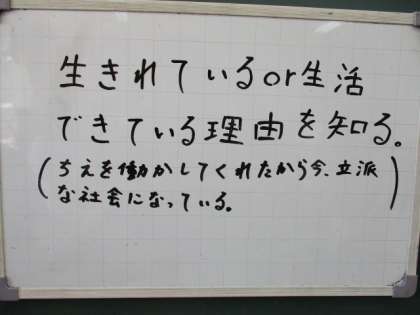 生きれているor生活
できている理由を知る。
(ちえを働かしてくれたから今、立派
な社会になっている。)